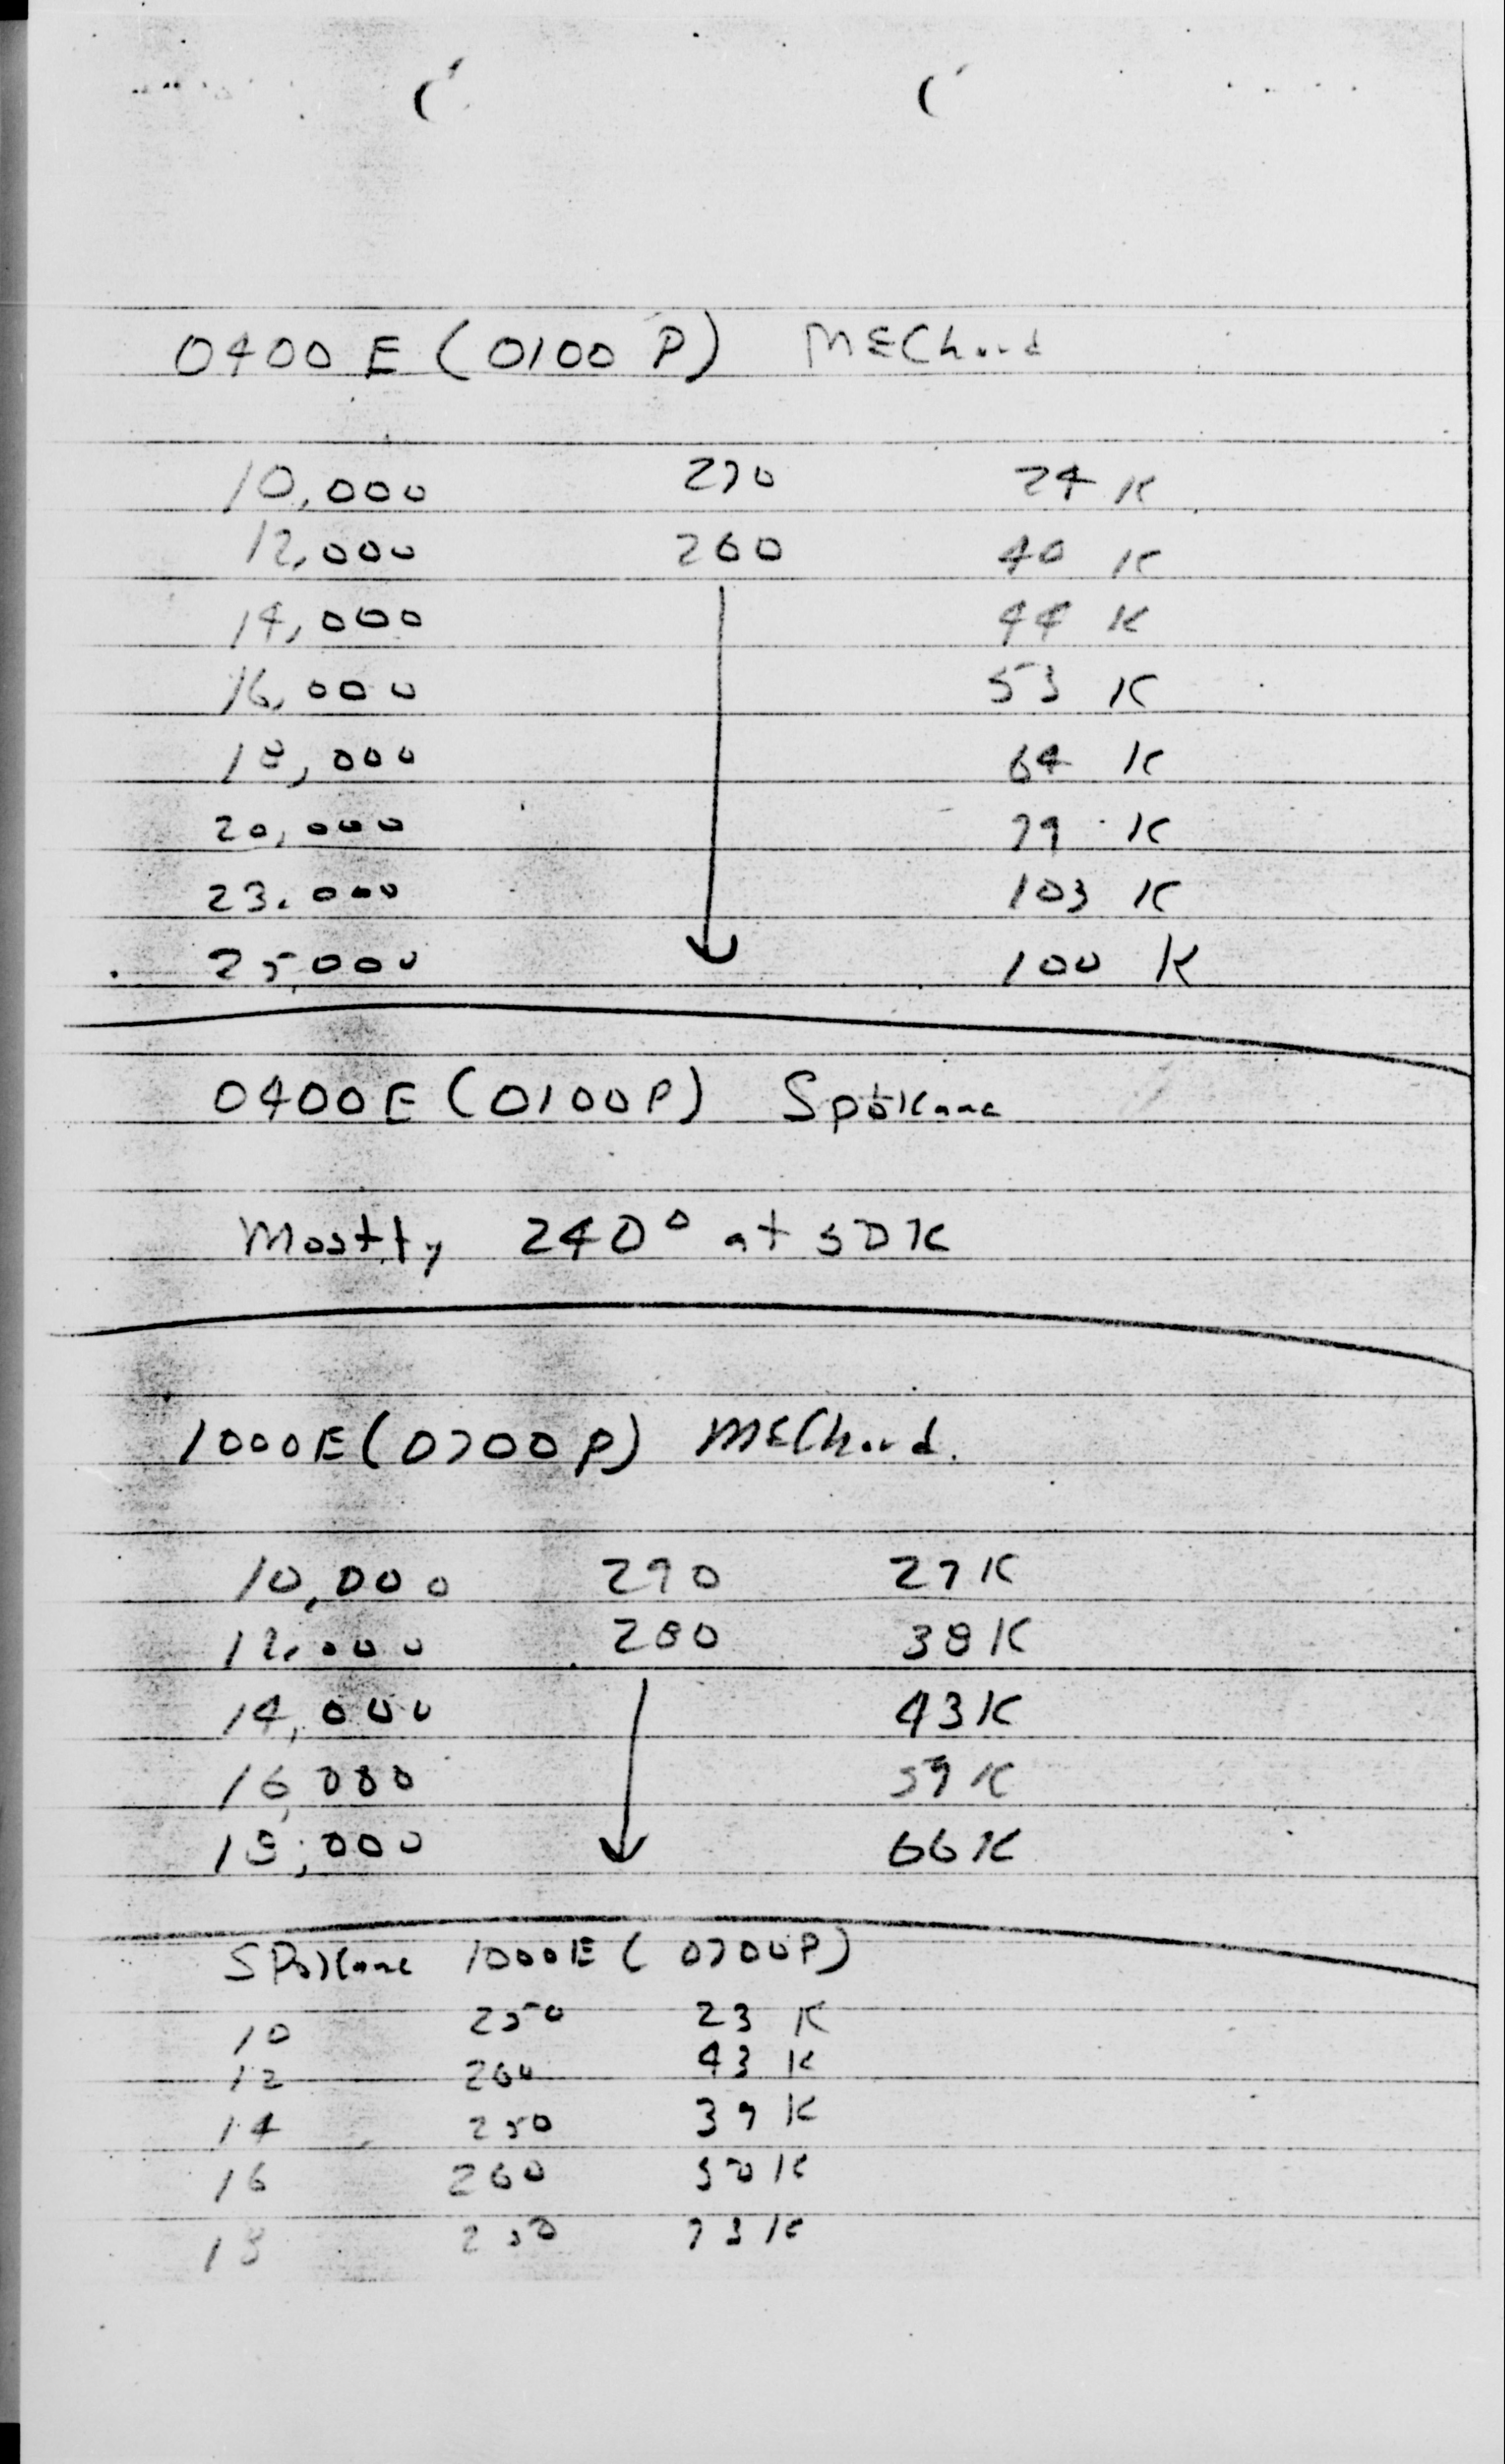 0400 E (0100 P) MEChord
10,000 270 24 K
12,000 260 40 K
14,000 44 K
16,000 53 K
18,000 64 K
20,000 79 K
23,000 103 K
25,000 100 K
0400E (0100P) Spokane
Mostly 240° at 50K
1000E (0700P) MEChord.
10,000 290 27K
12,000 280 38K
14,000 43K
16,000 59K
18,000 66K
SPokane 1000E ( 0700P)
10 250 23 K
12 260 43 K
14 250 39 K
16 260 50K
18 250 73K